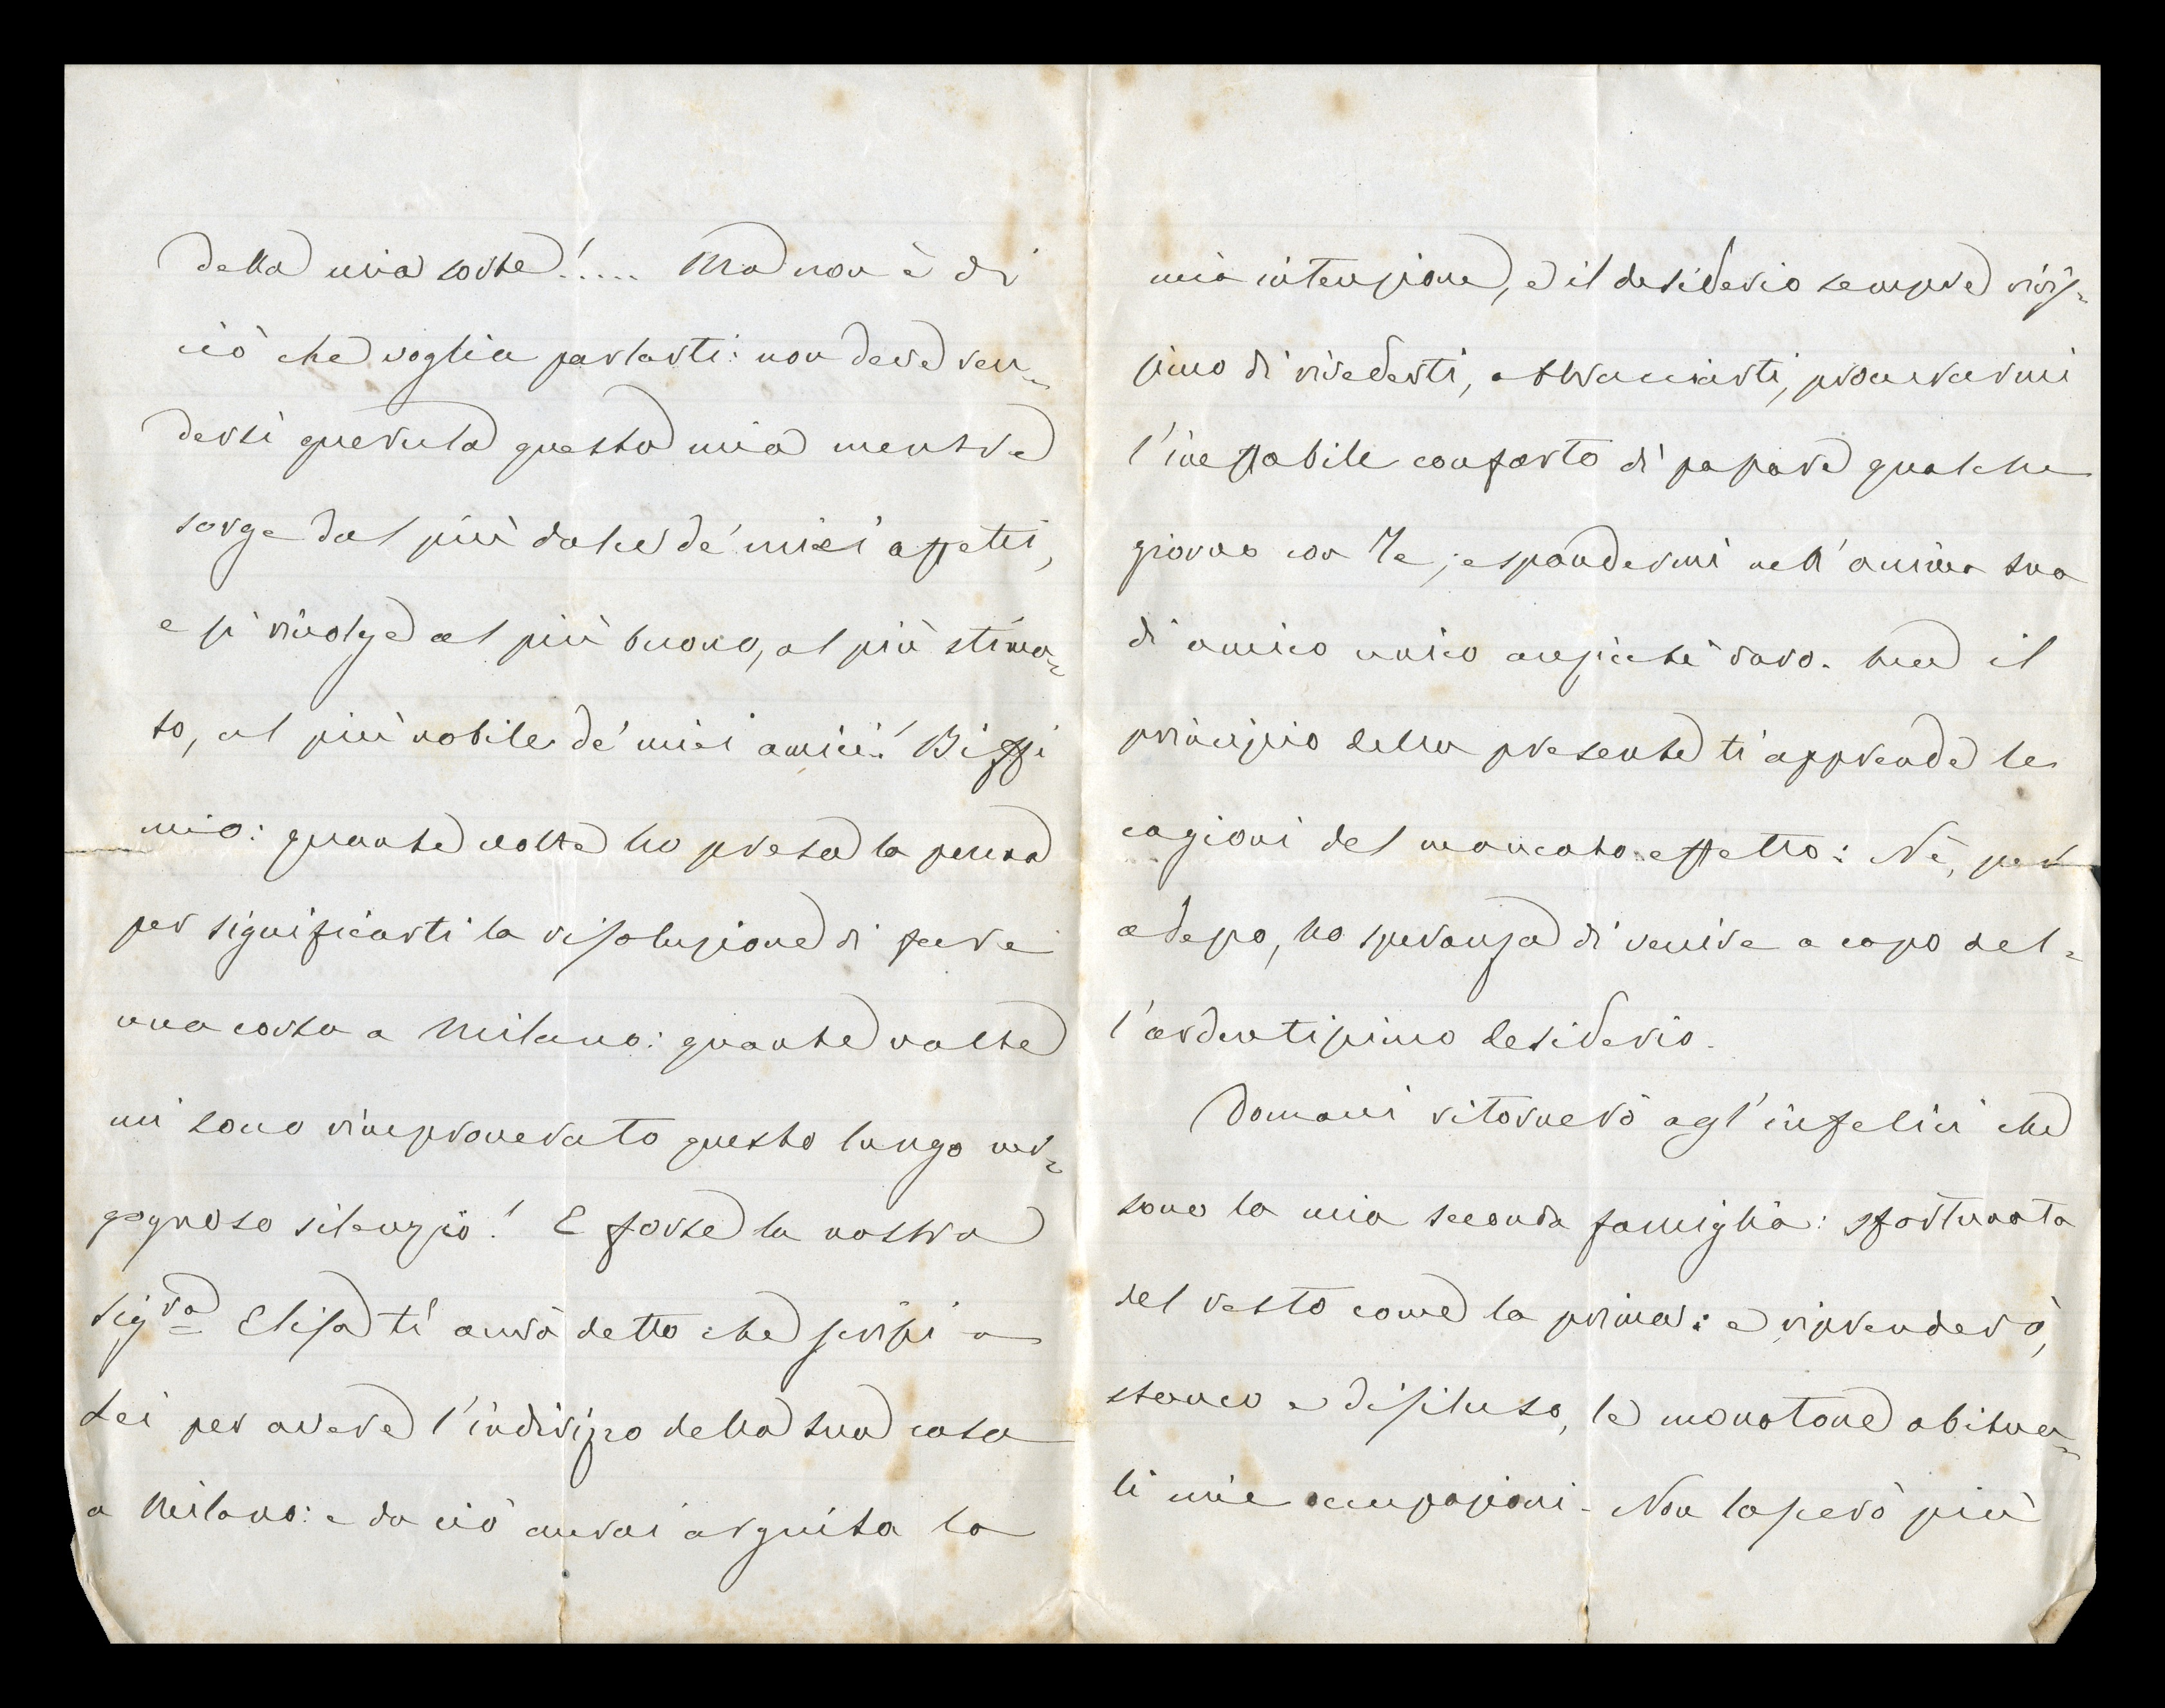 della mia sorte!.... Ma non è di
ciò che voglia parlarti: non deve ren=
dersi querula questa mia mentre
sorge dal più dolce de' miei affetti,
e si rivolge al più buono, al più stima=
to, al più nobile de' miei amici! Biffi
mio: quante volte ho presa la penna
per significarti la risoluzione di fare
una corsa a Milano: quante volte
mi sono rimproverato questo lungo ver=
gognoso silenzio! E forse la nostra
Sigra Elisa ti avrà detto che scrissi a
Lei per avere l'indirizzo della sua casa
a Milano: e da ciò avrai arguita la
mia intenzione, e il desiderio sempre vivis=
simo di rivederti, abbracciarti, procurarmi
l'ineffabile conforto di passare qualche
giorno con Te; espandermi nell'anima tua
di amico unico anzicchè raro. Ma il
principio della presente ti apprende le
cagioni del mancato effetto: Nè, per
adesso, ho speranza di venire a capo del=
l'ardentissimo desiderio.
Domani ritornerò agl'infelici che
sono la mia seconda famiglia: sfortunata
del resto come la prima: e riprenderò,
stanco e disilluso, le monotone abitua=
li mie occupazioni. Non lascerò più